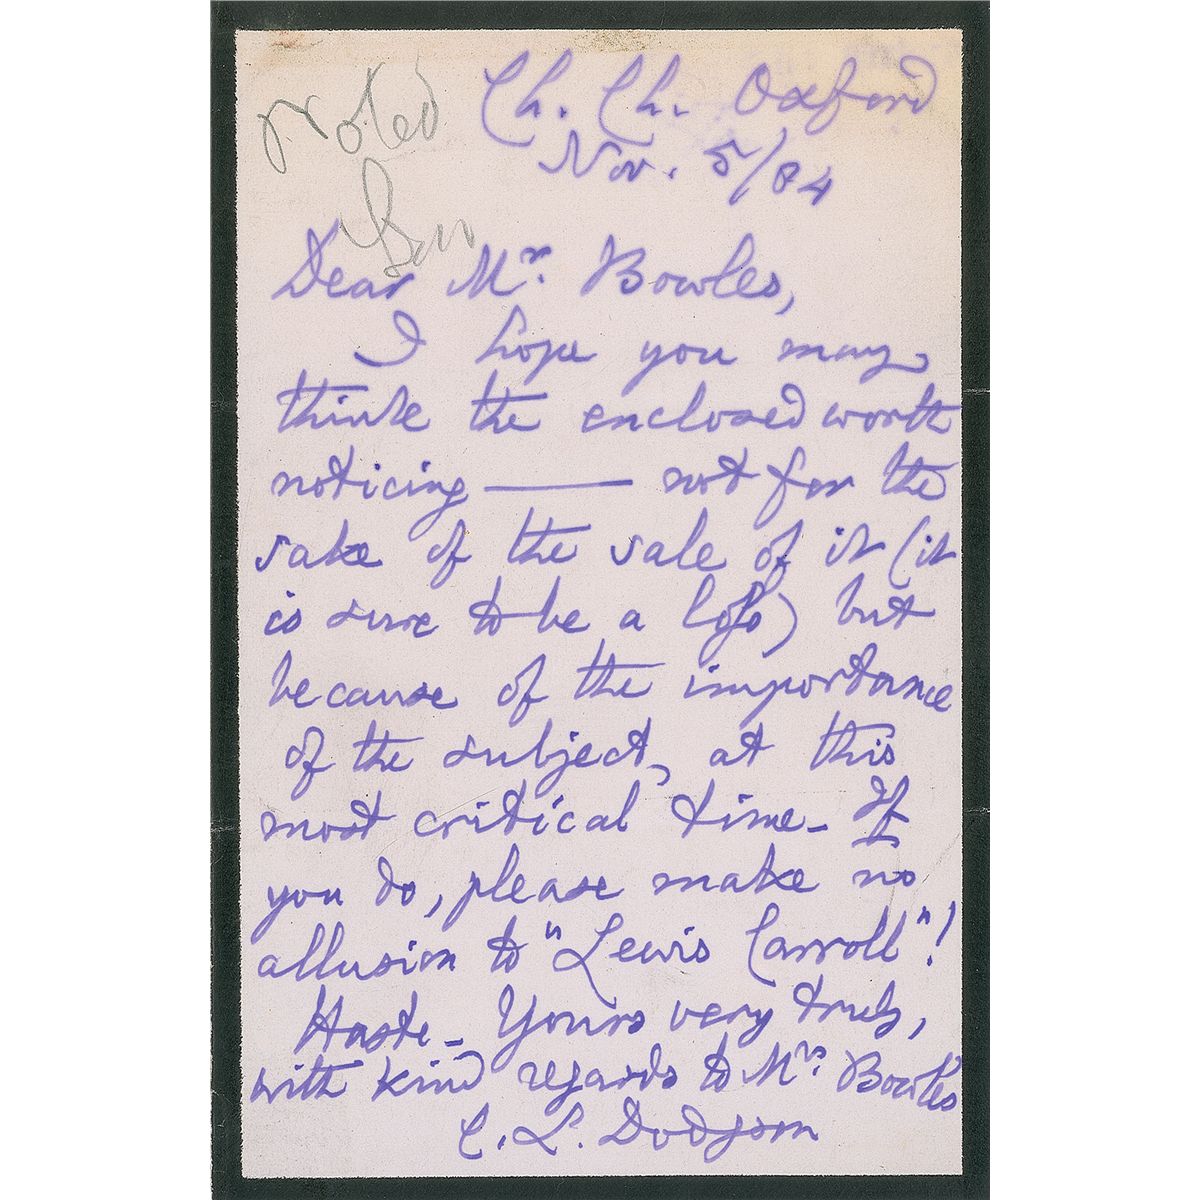 noted
Ch. Ch. Oxford
Nov. 5/84
Dear Mr. Bowles,
I hope you may
think the enclosed worth
noticing — not for the
sake of the sale of it (it
is sure to be a loss) but
because of the importance
of the subject, at this
most critical time - If
you do, please make no
allusion to "Lewis Carroll"!
Haste - Yours very truly,
with kind regards to Mrs. Bowles
C. L. Dodgson